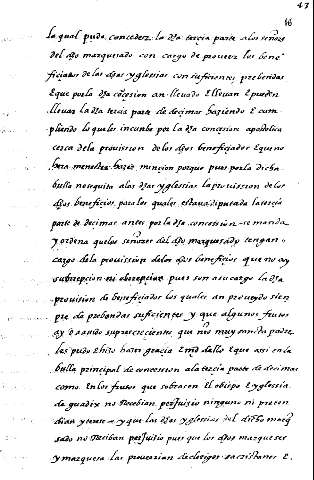 43
16
la qual pudo conceder la dha terçia parte a los señores
del dho marquesado con cargo de proveer los bene
ficiados de las dhas yglesias con suficientes prebendas
E que por la dha cõcesion an llevado E llevan E pueden
llevar la dha tercia parte de decimas haziendo E cum
pliendo lo que les incunbe por la dha concesion apostolica
cerca de la provission de los dhos beneficiados E que no
hera menester hazer minçion porque pues por la dicha
bulla no se quita a las dhas yglesias la provission de los
dhos beneficios para los quales estava diputada la tercia
parte de decimas antes por la dha concession se manda
y ordena que los señores del dho marquesado tengan
cargo de la provission de los dhos beneficios que no ay
subrepcion ni obrepcion pues son a su cargo la dha
provision de beneficiados los quales an proveydo sien
pre de prebendas suficientes y que algunos frutos
ay o an sido supercrecientes que nro muy santo padre
les pudo E hizo hazer gracia E md dello E que assi en la
bulla principal de concession a la tercia parte de decimas
como en los frutos que sobrasen El obispo E yglesia
de guadix no Recebian perjuisio ninguno ni preten
dian y que las dhas yglesias del dicho marq
sado no Recibian perjuisio pues que los dhos marqueses
y marquesa las proveerian de clerigos sacristanes E